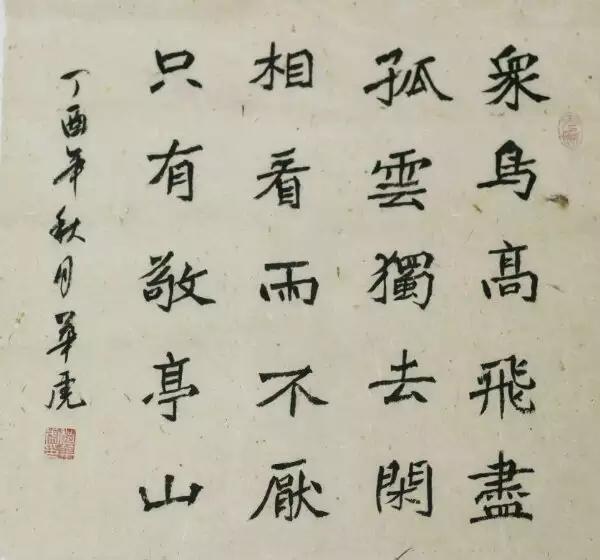 衆鳥高飛盡
孤雲獨去閑
相看兩不厭
只有敬亭山
丁酉年秋月華虎